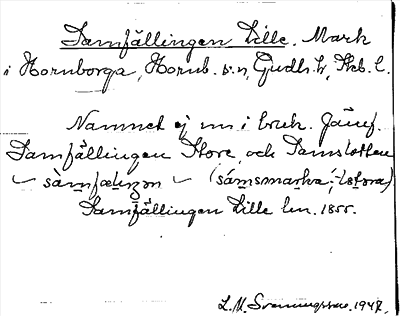 Samfällingen Lille. Mark
i Hornborga, Hornb. s:n, Gudh. h, Skb. l.
Namnet ej nu i bruk. Jämf.
Samfällingen Store, och Samslotten
sàmfæliŋən (sámsmarka,
Samfällingen Lille km. 1855.
L. M. Svenungsson. 1947.